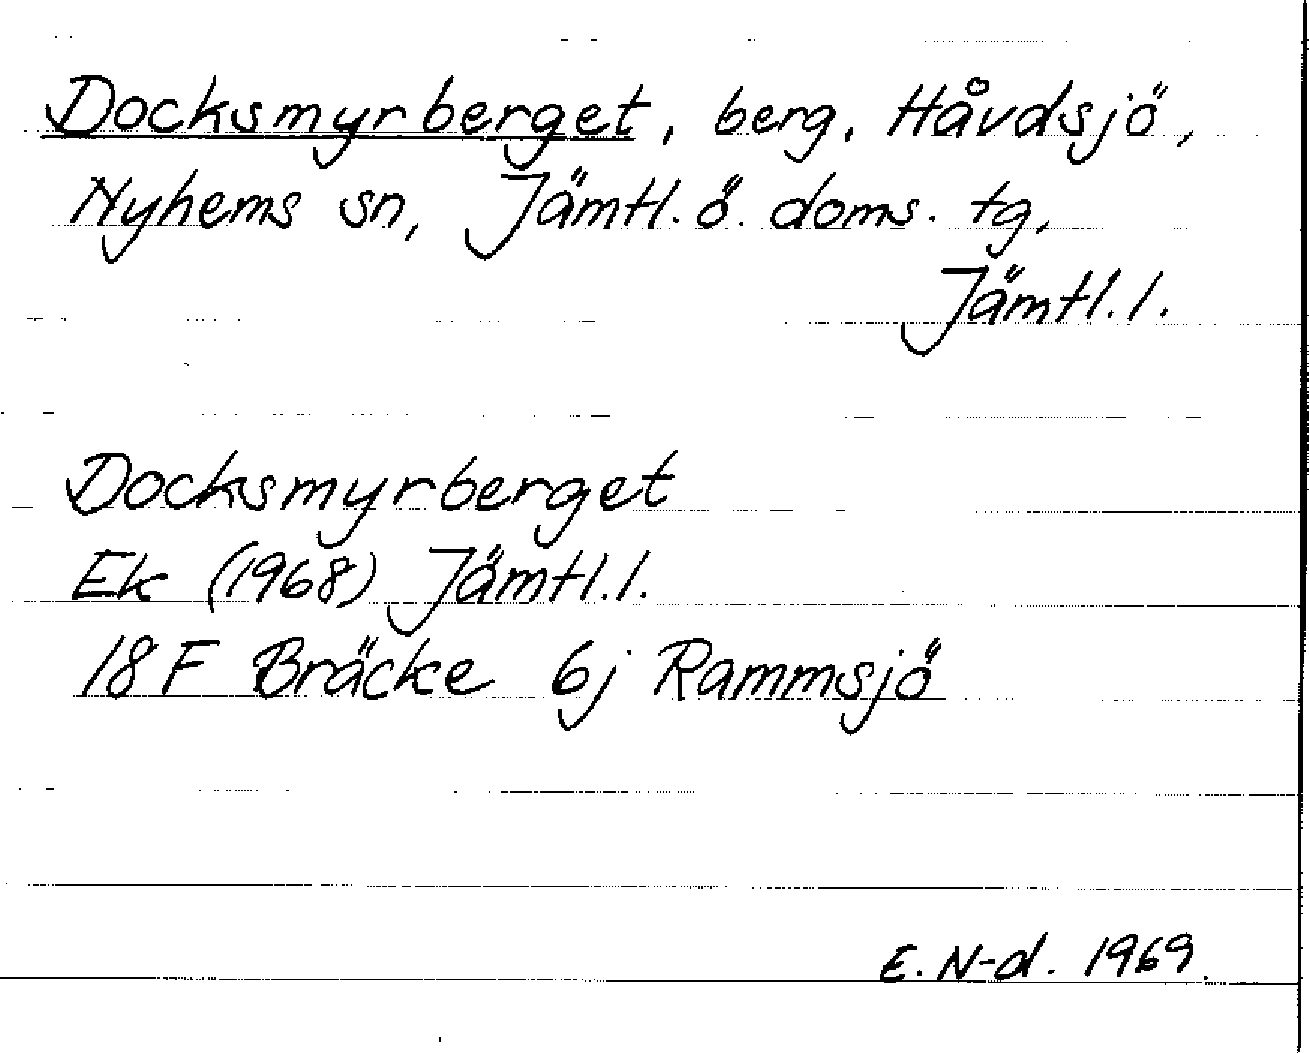 Docksmyrberget, berg, Håvdsjö,
Nyhems sn, Jämtl. ö. doms. tg,
Jämtl. l.
Docksmyrberget
Ek (1968) Jämtl. l.
18 F Bräcke 6j Rammsjö
E. N-d. 1969.